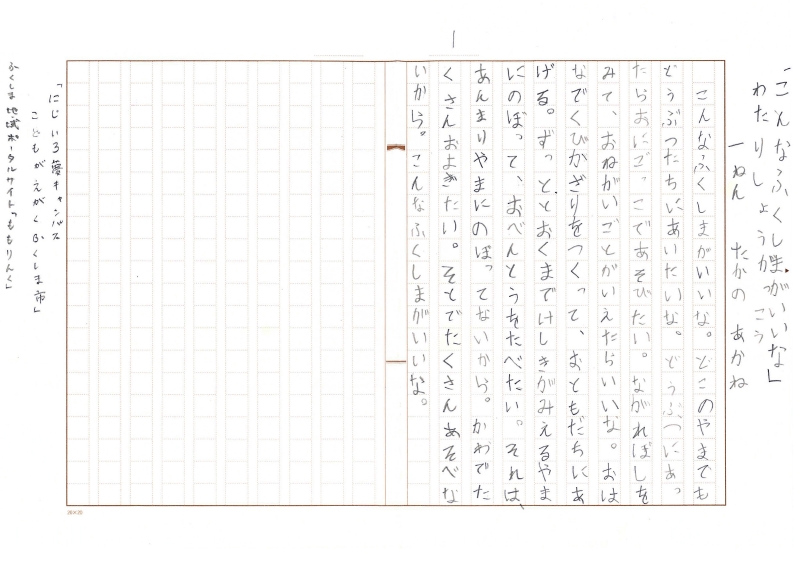 1
「こんなふくしまがいいな」
わたりしょうがっこう
一ねん たかの あかね
こんなふくしまがいいな。どこのやまでも
どうぶつたちにあいたいな。どうぶつにあっ
たらおにごっこであそびたい。ながれぼしを
みて、おねがいごとがいえたらいいな。おは
なでくびかざりをつくって、おともだちにあ
げる。ずっととおくまでけしきがみえるやま
にのぼって、おべんとうをたべたい。それは、
あんまりやまにのぼってないから。かわでた
くさんおよぎたい。そとでたくさんあそべな
いから。こんなふくしまがいいな。
「にじいろ夢キャンバス
こどもがえがくふくしま市」
ふくしま地域ポータルサイト「ももりんく」
20×20